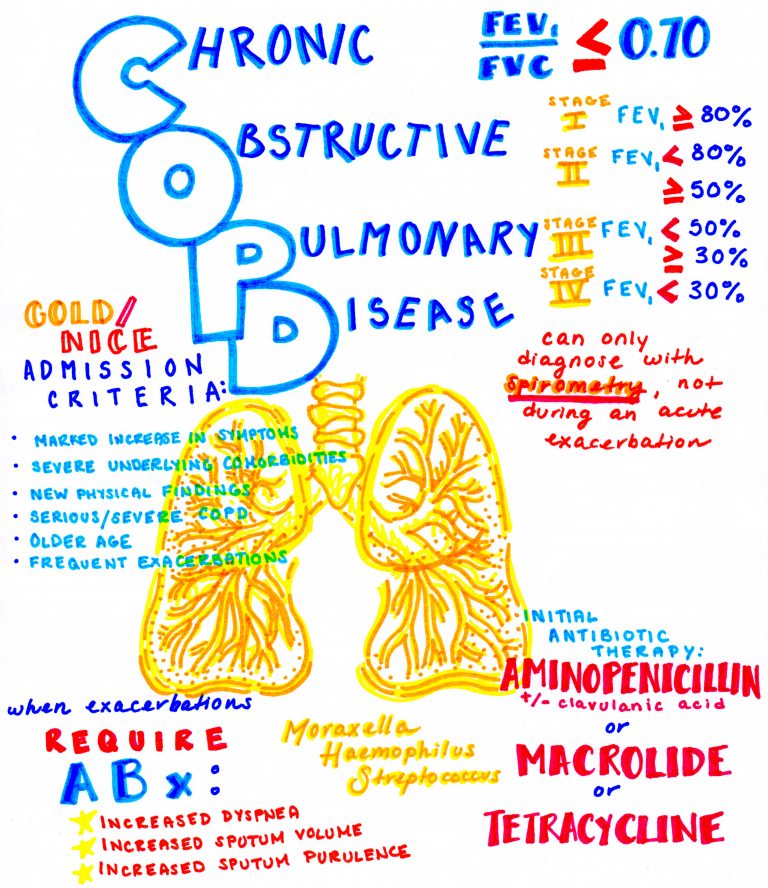 CHRONIC
OBSTRUCTIVE
PULMONARY
DISEASE
FEV₁
FVC ≤ 0.70
STAGE I FEV₁ ≥ 80%
STAGE II FEV₁ < 80%
≥ 50%
STAGE III FEV₁ < 50%
≥ 30%
STAGE IV FEV₁ < 30%
can only
diagnose with
Spirometry, not
during an acute
exacerbation
GOLD/
NICE
ADMISSION
CRITERIA:
• MARKED INCREASE IN SYMPTOMS
• SEVERE UNDERLYING COMORBIDITIES
• NEW PHYSICAL FINDINGS
• SERIOUS/SEVERE COPD
• OLDER AGE
• FREQUENT EXACERBATIONS
when exacerbations
REQUIRE
ABx:
INCREASED DYSPNEA
INCREASED SPUTUM VOLUME
INCREASED SPUTUM PURULENCE
Moraxella
Haemophilus
Streptococcus
INITIAL
ANTIBIOTIC
THERAPY:
AMINOPENICILLIN
+/- clavulanic acid
or
MACROLIDE
or
TETRACYCLINE